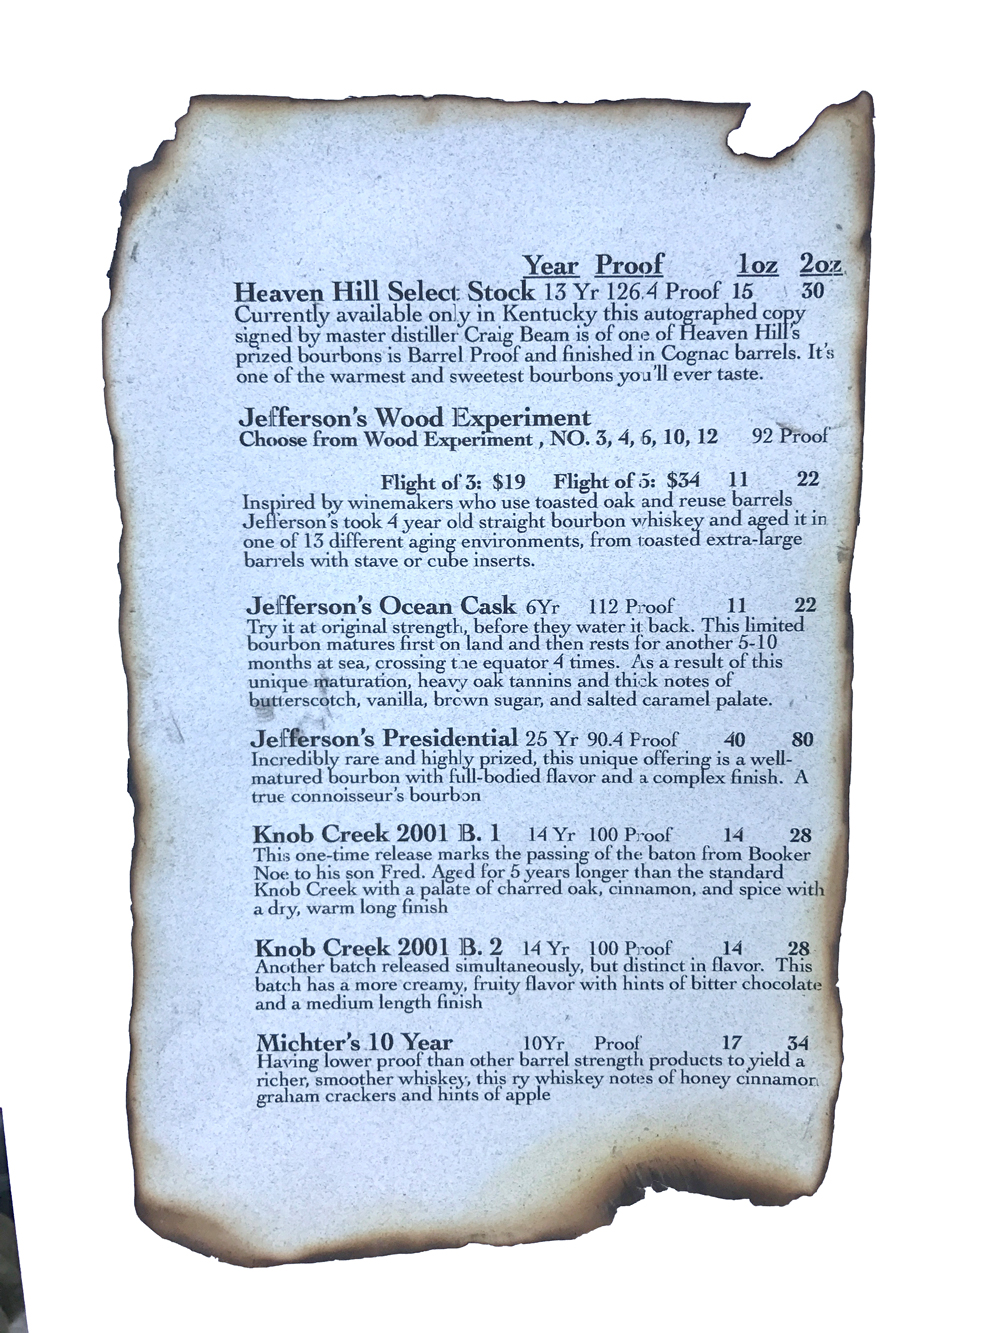 Year Proof 1oz 2oz
Heaven Hill Select Stock 13 Yr 126.4 Proof 15 30
Currently available only in Kentucky this autographed copy
signed by master distiller Craig Beam is of one of Heaven Hill's
prized bourbons is Barrel Proof and finished in Cognac barrels. It's
one of the warmest and sweetest bourbons you'll ever taste.
Jefferson's Wood Experiment
Choose from Wood Experiment , NO. 3, 4, 6, 10, 12 92 Proof
Flight of 3: $19 Flight of 5: $34 11 22
Inspired by winemakers who use toasted oak and reuse barrels
Jefferson's took 4 year old straight bourbon whiskey and aged it in
one of 13 different aging environments, from toasted extra-large
barrels with stave or cube inserts.
Jefferson's Ocean Cask 6Yr 112 Proof 11 22
Try it at original strength, before they water it back. This limited
bourbon matures first on land and then rests for another 5-10
months at sea, crossing the equator 4 times. As a result of this
unique maturation, heavy oak tannins and thick notes of
butterscotch, vanilla, brown sugar, and salted caramel palate.
Jefferson's Presidential 25 Yr 90.4 Proof 40 80
Incredibly rare and highly prized, this unique offering is a well-
matured bourbon with full-bodied flavor and a complex finish. A
true connoisseur's bourbon
Knob Creek 2001 B. 1 14 Yr 100 Proof 14 28
This one-time release marks the passing of the baton from Booker
Noe to his son Fred. Aged for 5 years longer than the standard
Knob Creek with a palate of charred oak, cinnamon, and spice with
a dry, warm long finish
Knob Creek 2001 B. 2 14 Yr 100 Proof 14 28
Another batch released simultaneously, but distinct in flavor. This
batch has a more creamy, fruity flavor with hints of bitter chocolate
and a medium length finish
Michter's 10 Year 10Yr Proof 17 34
Having lower proof than other barrel strength products to yield a
richer, smoother whiskey, this ry whiskey notes of honey cinnamon
graham crackers and hints of apple